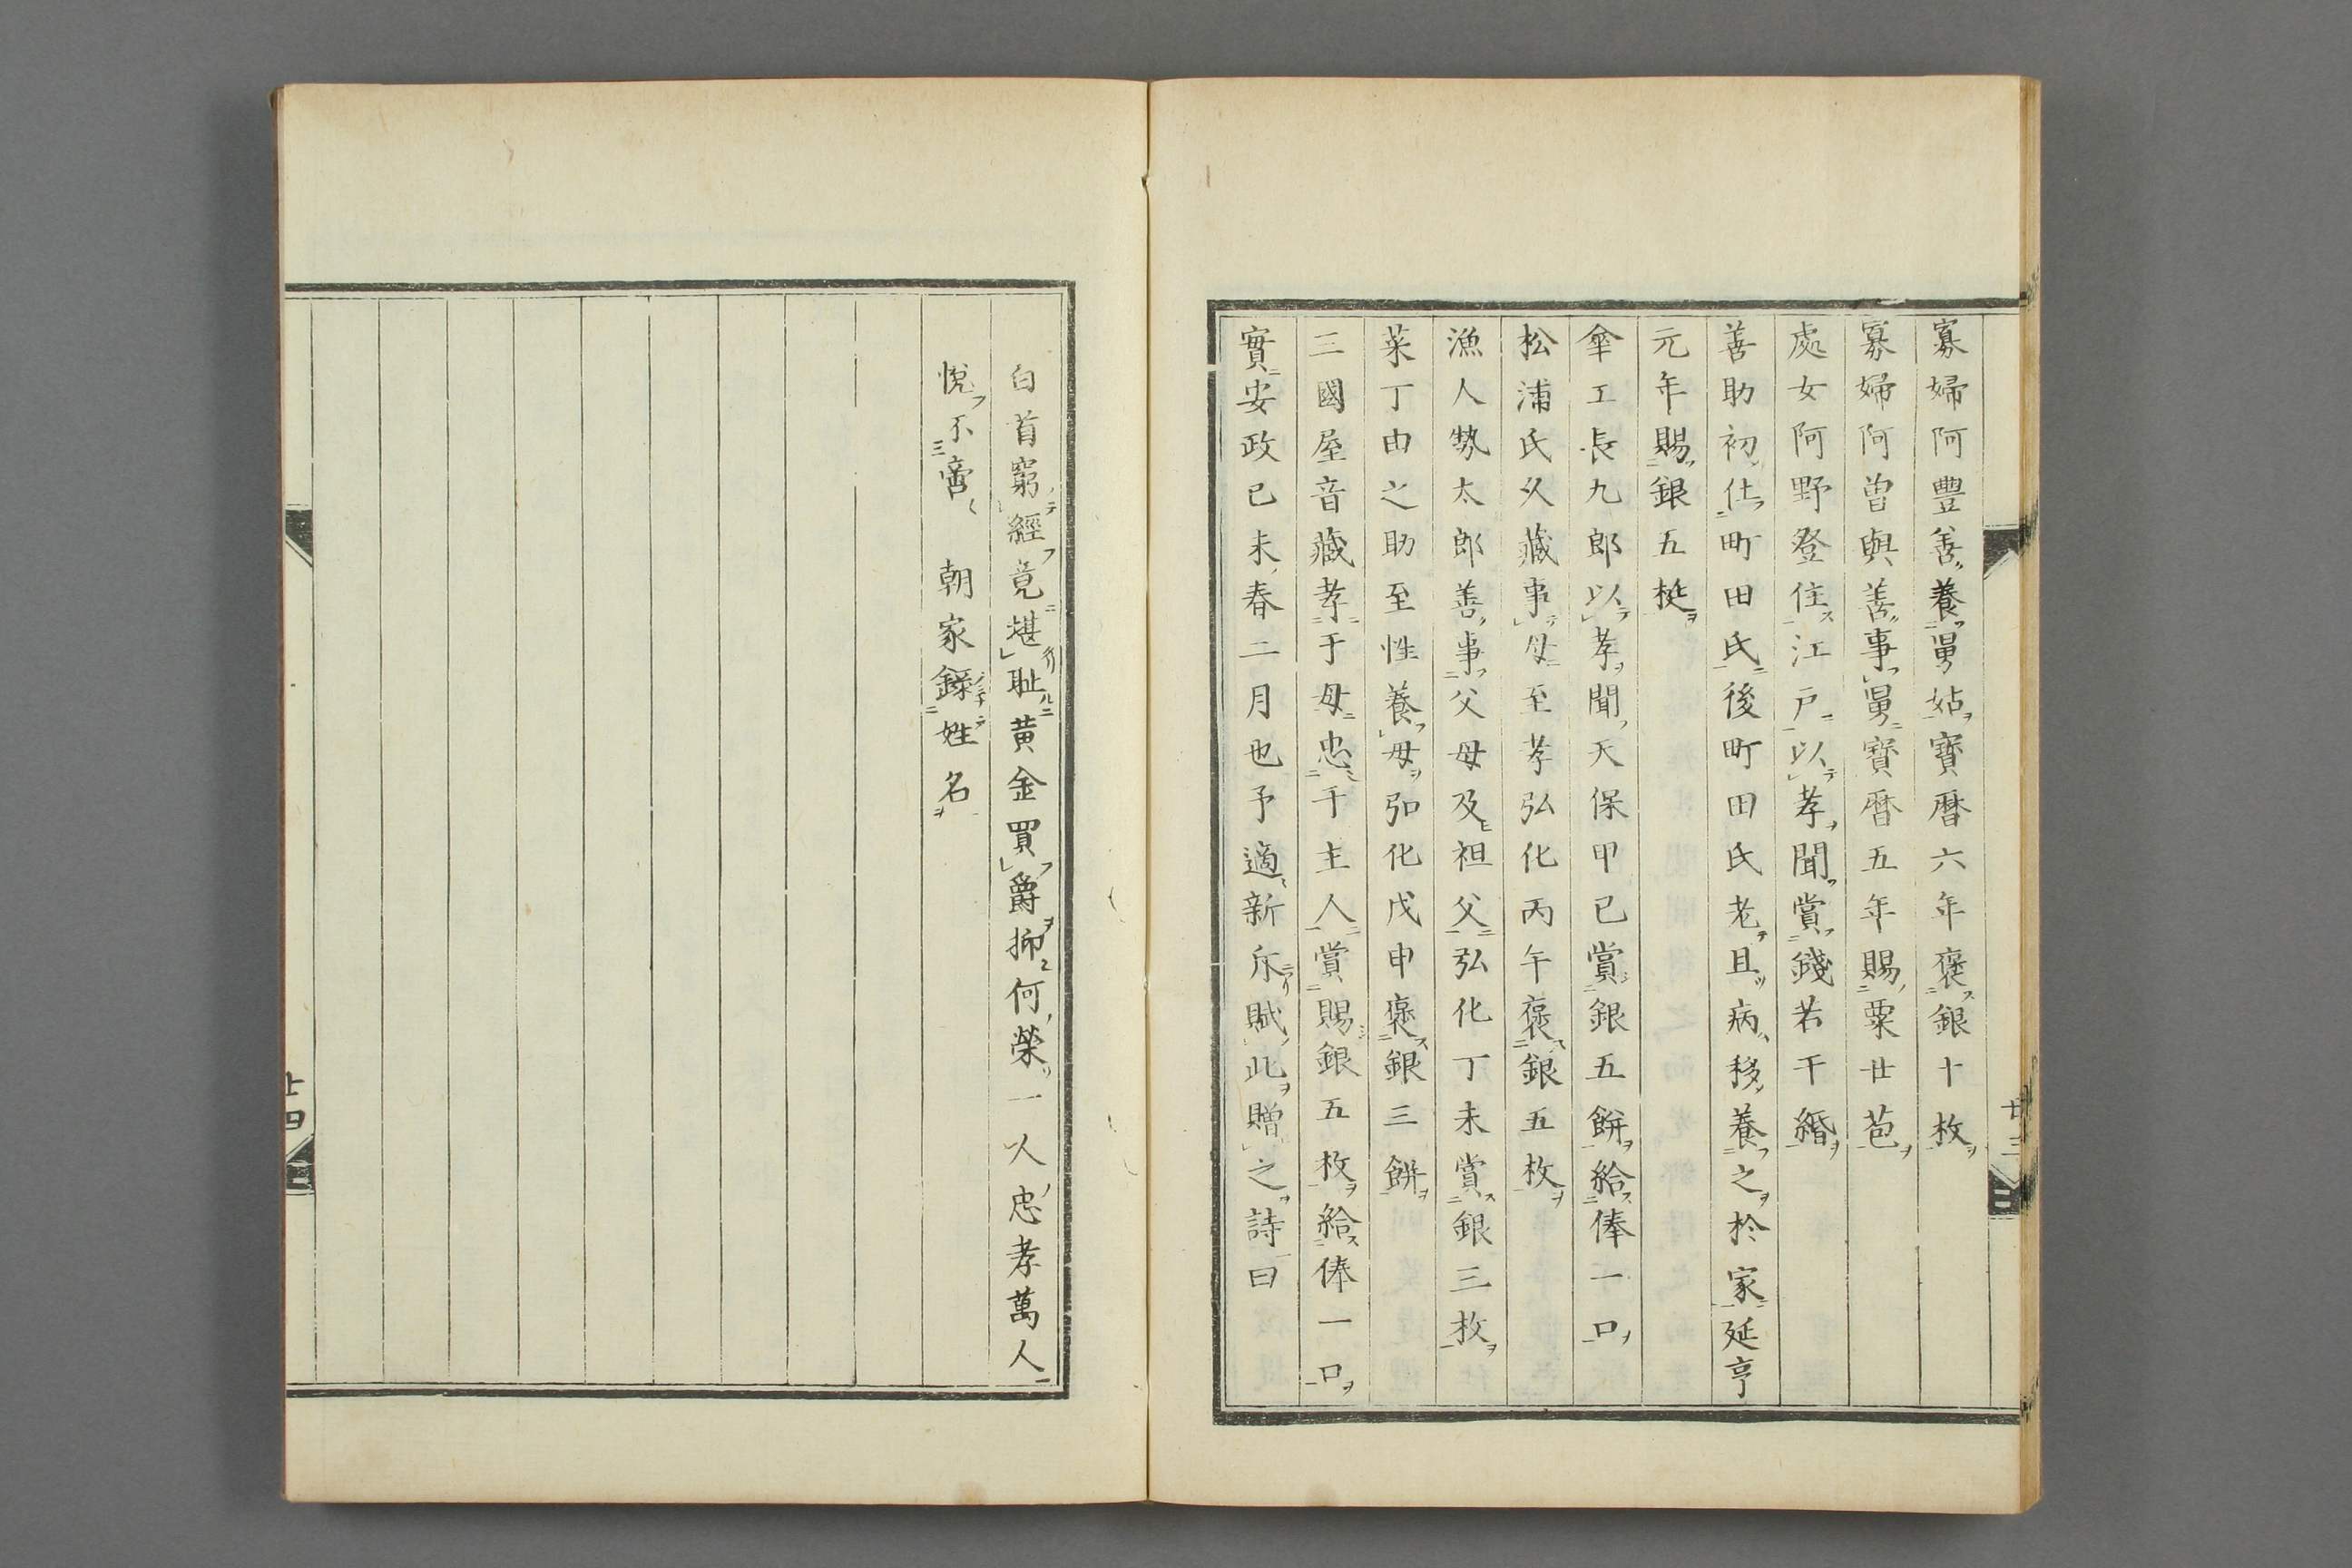 寡婦阿豐善養舅姑寶暦六年褒銀十枚
寡婦阿曽與善事舅寶暦五年賜粟廿苞
處女阿野登住江戸以孝聞賞錢若干緡
善助初仕町田氏後町田氏老且病移養之於家延亨
元年賜銀五梃
傘工長九郎以孝聞天保甲巳賞銀五餅給俸一口
松浦氏久藏事母至孝弘化丙午褒銀五枚
漁人勢太郎善事父母及祖父弘化丁未賞銀三枚
菜丁由之助至性養母弘化戊申褒銀三餅
三國屋音藏孝于母忠于主人賞賜銀五枚給俸一口
實安政己未春二月也予適新斥賦此贈之詩曰
廿三
白首窮經竟堪耻黄金買爵抑何榮一人忠孝萬人
悅不啻朝家錄姓名
廿四